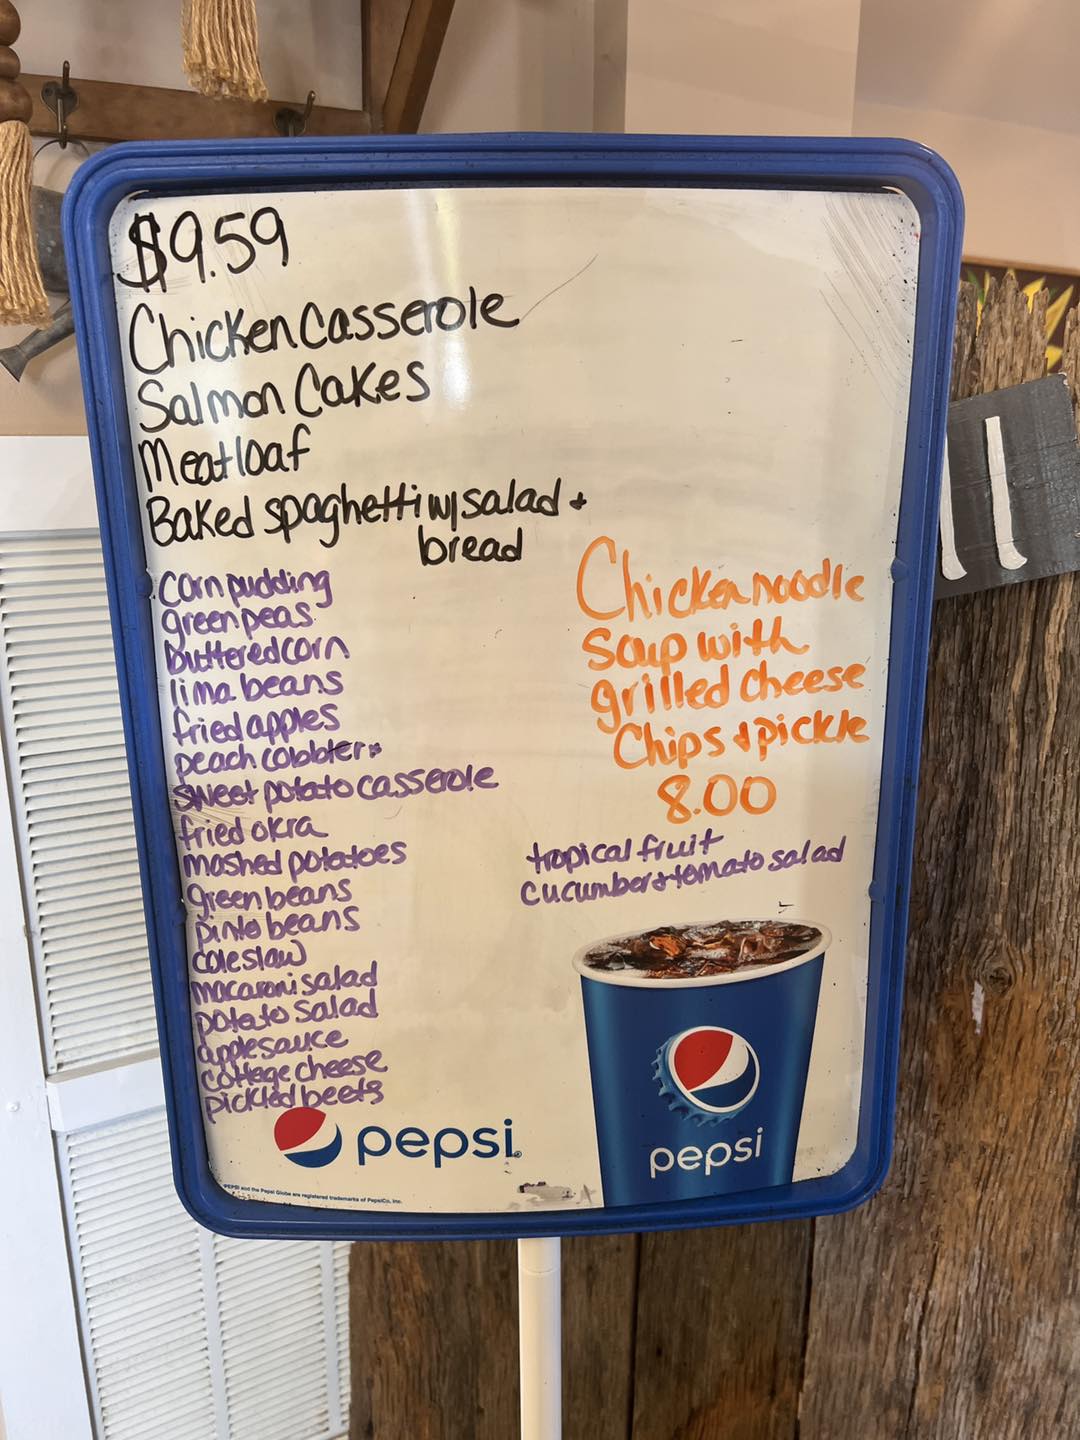 $9.59
Chicken Casserole
Salmon Cakes
Meatloaf
Baked spaghetti w/ salad +
bread
corn pudding
green peas
buttered corn
lima beans
fried apples
peach cobbler*
sweet potato casserole
fried okra
mashed potatoes
green beans
pinto beans
coleslaw
macaroni salad
potato salad
applesauce
cottage cheese
pickled beets
Chicken noodle
Soup with
grilled cheese
Chips + pickle
8.00
tropical fruit
cucumber + tomato salad
pepsi
pepsi
PEPSI and the Pepsi Globe are registered trademarks of PepsiCo, Inc.